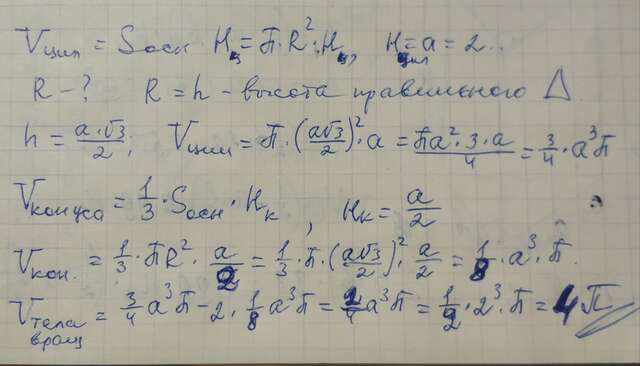 Vцил = Sосн · Hц = П · R² · Hц, Hцил = a = 2...
R - ? R = h - высота правильного Δ.
h = a·√3/2; Vцил = П · (a√3/2)² · a = Пa²·3·a/4 = 3/4 · a³П
Vконуса = 1/3 · Sосн · Hк, Hк = a/2
Vкон. = 1/3 · ПR² · a/2 = 1/3 · П · (a√3/2)² · a/2 = 1/8 · a³ · П.
Vтела вращ = 3/4 a³П - 2 · 1/8 a³П = 2/4 a³П = 1/2 · 2³ · П = 4П